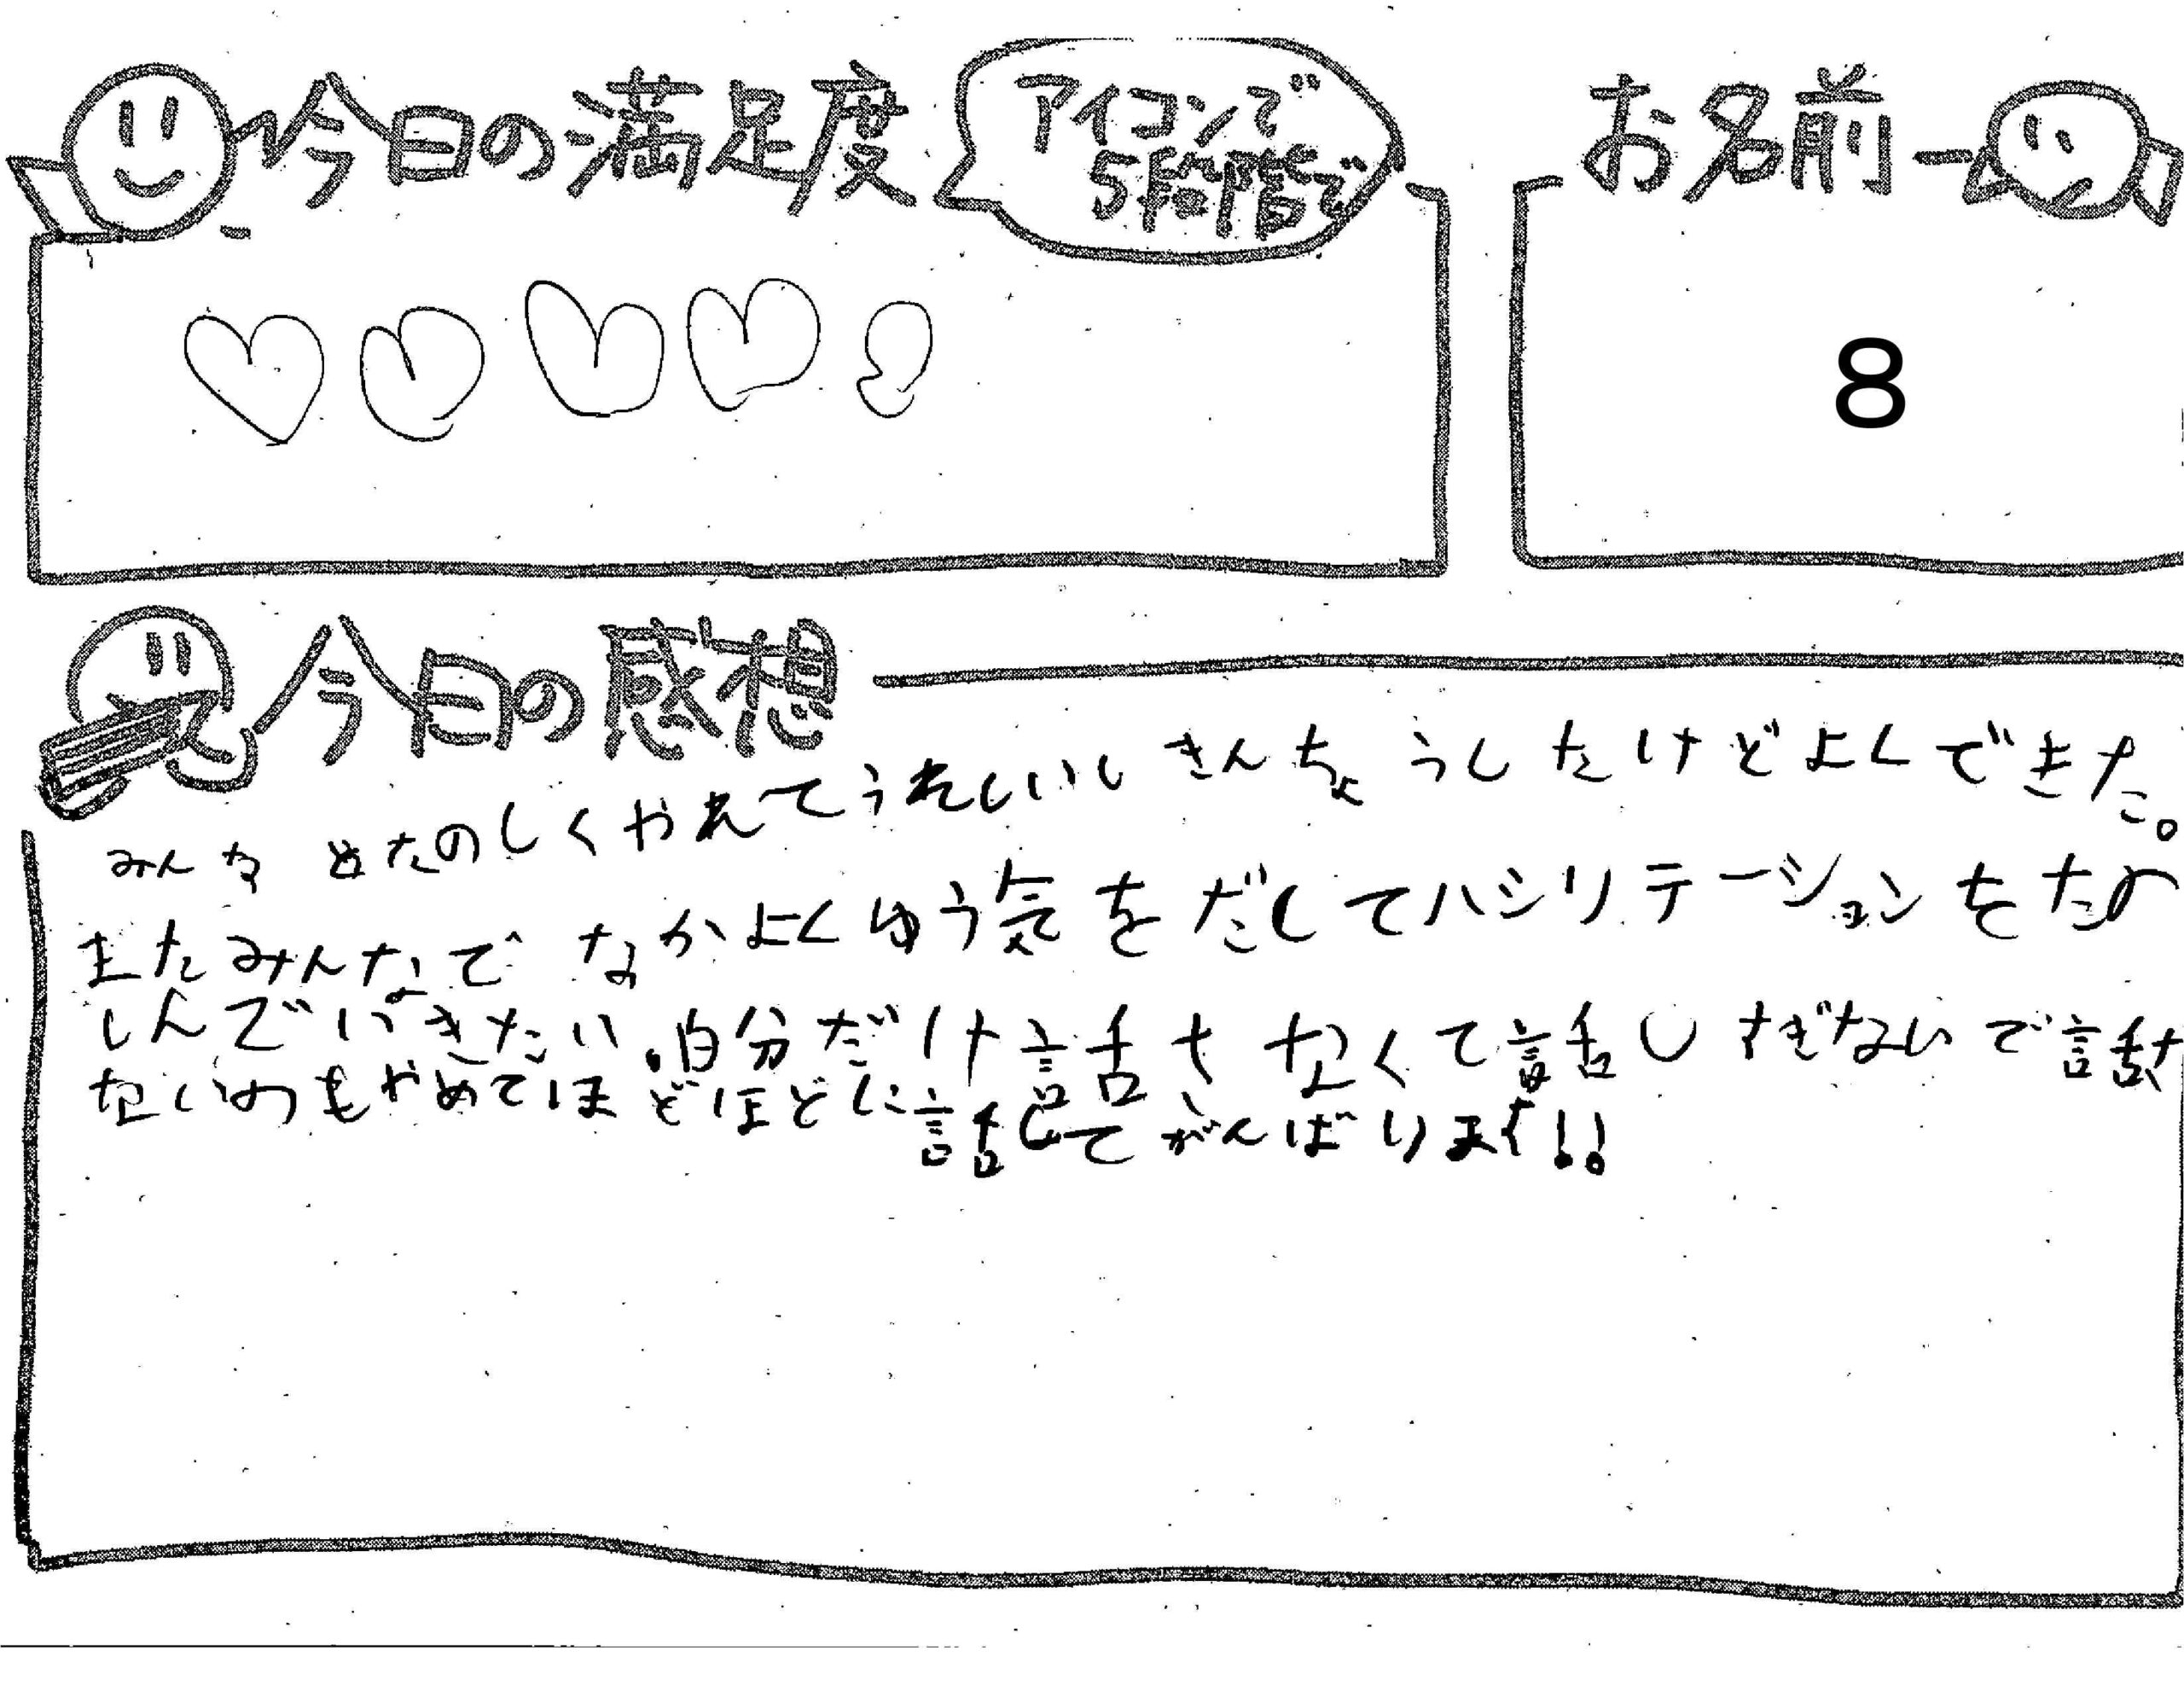 今日の満足度
アイコンで
5段階で
お名前
8
今日の感想
みんなとたのしくやれてうれしいいしきんちょうしたけどよくできた。
またみんなでなかよくゆう気をだしてハシリテーションをたの
しんでいきたい。自分だけ話さなくて話しすぎないで話さ
ないのもやめてほどほどに話してがんばります!!